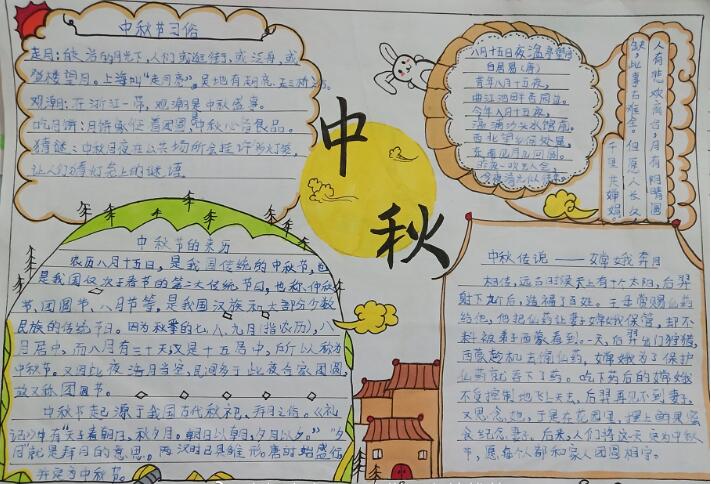 中秋节习俗
走月：皎洁的月光下，人们或逛街，或泛舟，或
登楼望月。上海叫“走月亮”，吴地有胡亮
观潮：在浙江一带，观潮是中秋盛事。
吃月饼：月饼象征着团圆，中秋必备食品。
猜谜：中秋月夜在公共场所会挂许多灯笼，
让人们猜灯笼上的谜语。
中
秋
八月十五日夜湓亭望月
白居易（唐）
昔年八月十五夜，
曲江池畔杏园边。
今年八月十五夜，
湓浦沙头水馆前。
西北望乡何处是，
东南见月几回圆。
今夜清光似往年。
人有悲欢离合，月有阴晴圆
缺，此事古难全。但愿人长久，
千里共婵娟。
中秋节的来历
农历八月十五日，是我国传统的中秋节，也
是我国仅次于春节的第二大传统节日，也称仲秋
节、团圆节、八月节等，是我国汉族和大部分少数
民族的传统节日。因为秋季的七、八、九月（指农历），八
月居中，而八月有三十天，又是十五居中，所以称为
中秋节。又因此夜海月当空，民间多于此夜合家团圆，
故又称团圆节。
中秋节起源于我国古代秋祀、拜月之俗。《礼
记》中有“天子春朝日，秋夕月。朝日以朝，夕月以夕。”“夕
月”就是拜月的意思。两汉时已具雏形。唐时
中秋节。
中秋传说 —— 嫦娥奔月
相传，远古时候天上有十个太阳，后羿
射下九个后，造福了百姓。王母赏赐仙药
给他，他把仙药让妻子嫦娥保管，却不
料被弟子西蒙看到。一天，后羿出门狩猎，
西蒙趁机去偷仙药，嫦娥为了保护
仙药就吞下了药。吃下药后的嫦娥
不受控制地飞上天去，后羿再见不到妻子，
又思念她，于是在花园里，摆上鲜果蜜
食纪念妻子。后来，人们将这一天定为中秋
节，愿每个人都和家人团圆相守。